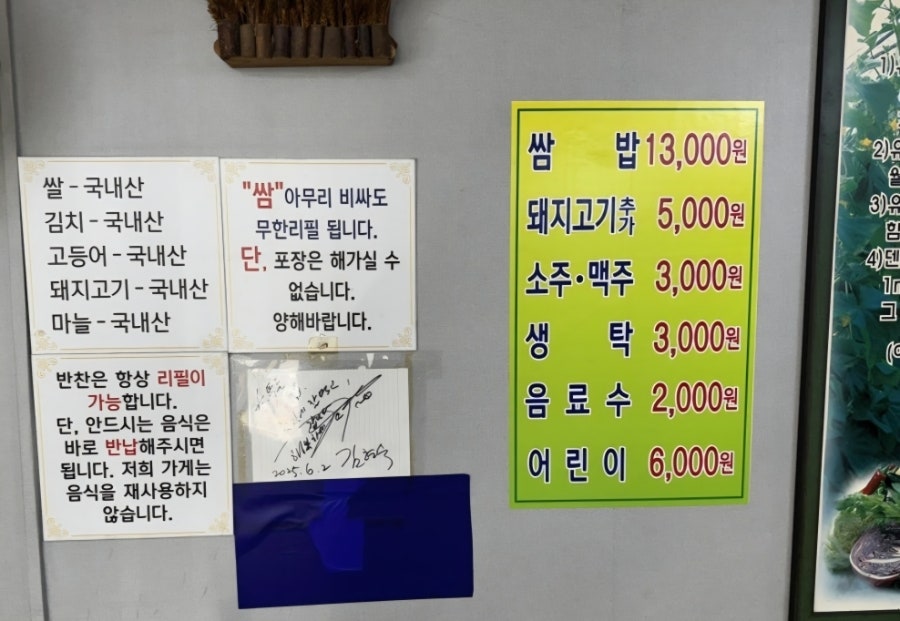 쌀 - 국내산
김치 - 국내산
고등어 - 국내산
돼지고기 - 국내산
마늘 - 국내산
"쌈"아무리 비싸도
무한리필 됩니다.
단, 포장은 해가실 수
없습니다.
양해바랍니다.
반찬은 항상 리필이
가능합니다.
단, 안드시는 음식은
바로 반납해주시면
됩니다. 저희 가게는
음식을 재사용하지
않습니다.
2025. 6. 2
쌈 밥 13,000원
돼지고기추가 5,000원
소주·맥주 3,000원
생 탁 3,000원
음료수 2,000원
어린이 6,000원
1)
2)유
3)유
힘
4)덴
그